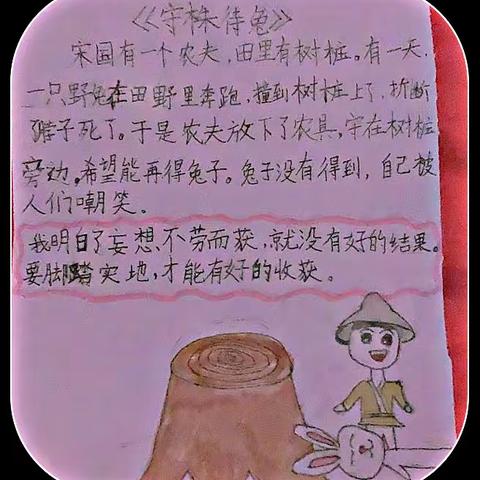 《守株待兔》
宋国有一个农夫,田里有树桩。有一天,
一只野兔在田野里奔跑,撞到树桩上了,折断
脖子死了。于是农夫放下了农具,守在树桩
旁边。希望能再得兔子。兔子没有得到,自己被
人们嘲笑。
我明白了妄想,不劳而获,就没有好的结果。
要脚踏实地,才能有好的收获。